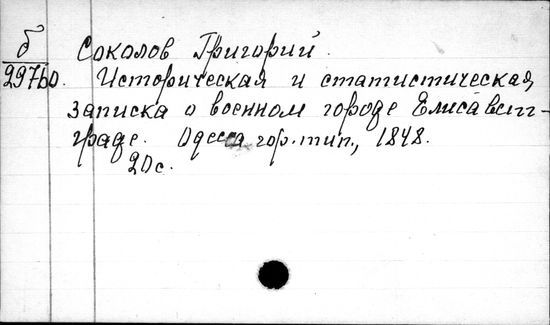 б Соколов Григорий.
29760. Историческая и статистическая
записка о военном городе Елисавет-
граде. Одесса гор. тип., 1848.
20с.